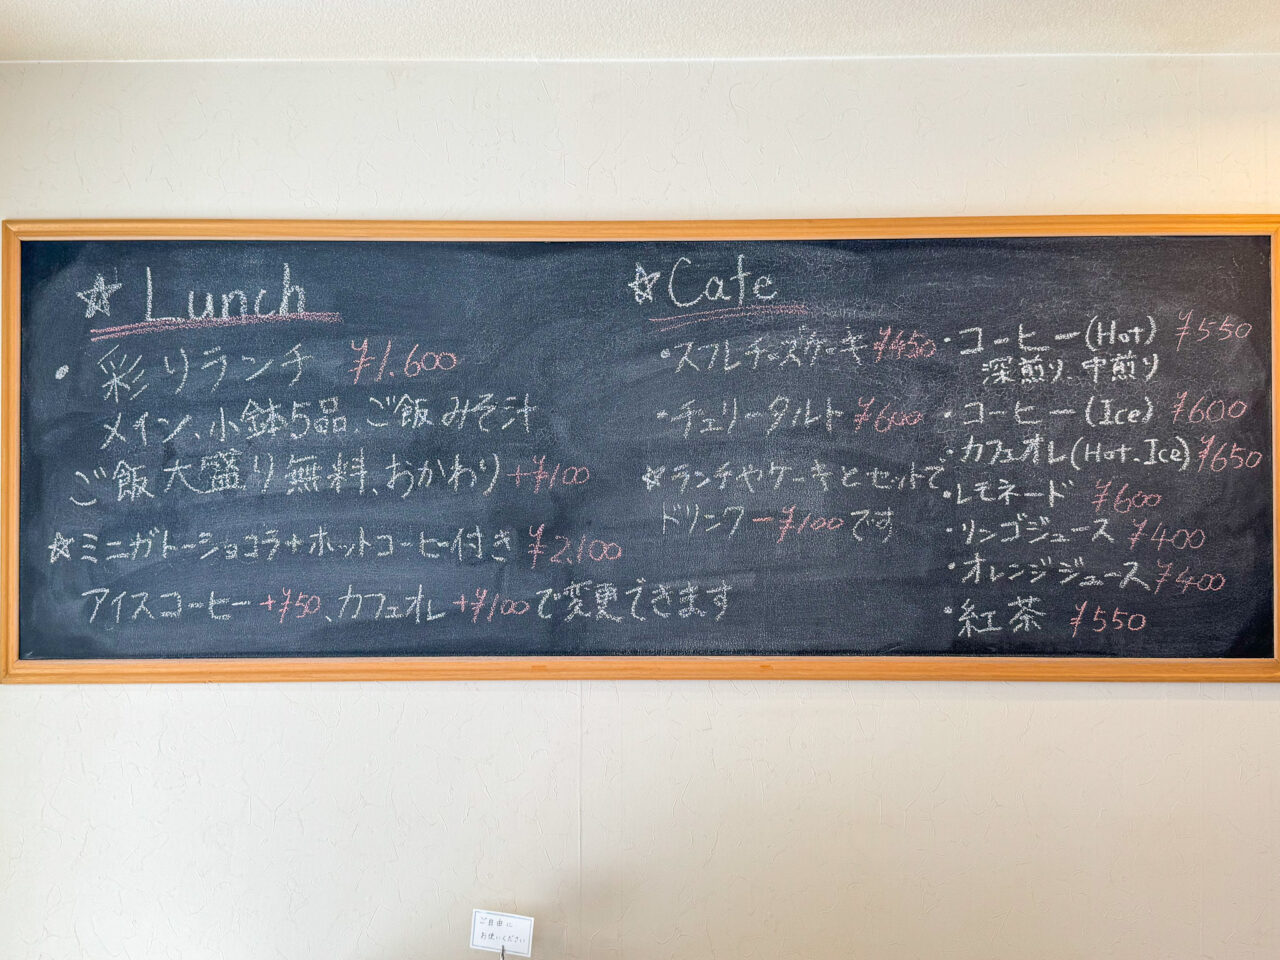 ☆ Lunch
・彩りランチ ¥1.600
メイン、小鉢5品、ご飯みそ汁
ご飯大盛り無料、おかわり+¥100
☆ミニガトーショコラ+ホットコーヒー付き ¥2.100
アイスコーヒー+¥50、カフェオレ+¥100で変更できます
☆Cafe
・スフレチーズケーキ ¥450
・チェリータルト ¥600
☆ランチやケーキとセットで
ドリンクー¥100です
・コーヒー(Hot) ¥550
深煎り、中煎り
・コーヒー(Ice) ¥600
・カフェオレ(Hot.Ice) ¥650
・レモネード ¥600
・リンゴジュース ¥400
・オレンジジュース ¥400
・紅茶 ¥550
ご自由に
お使いください